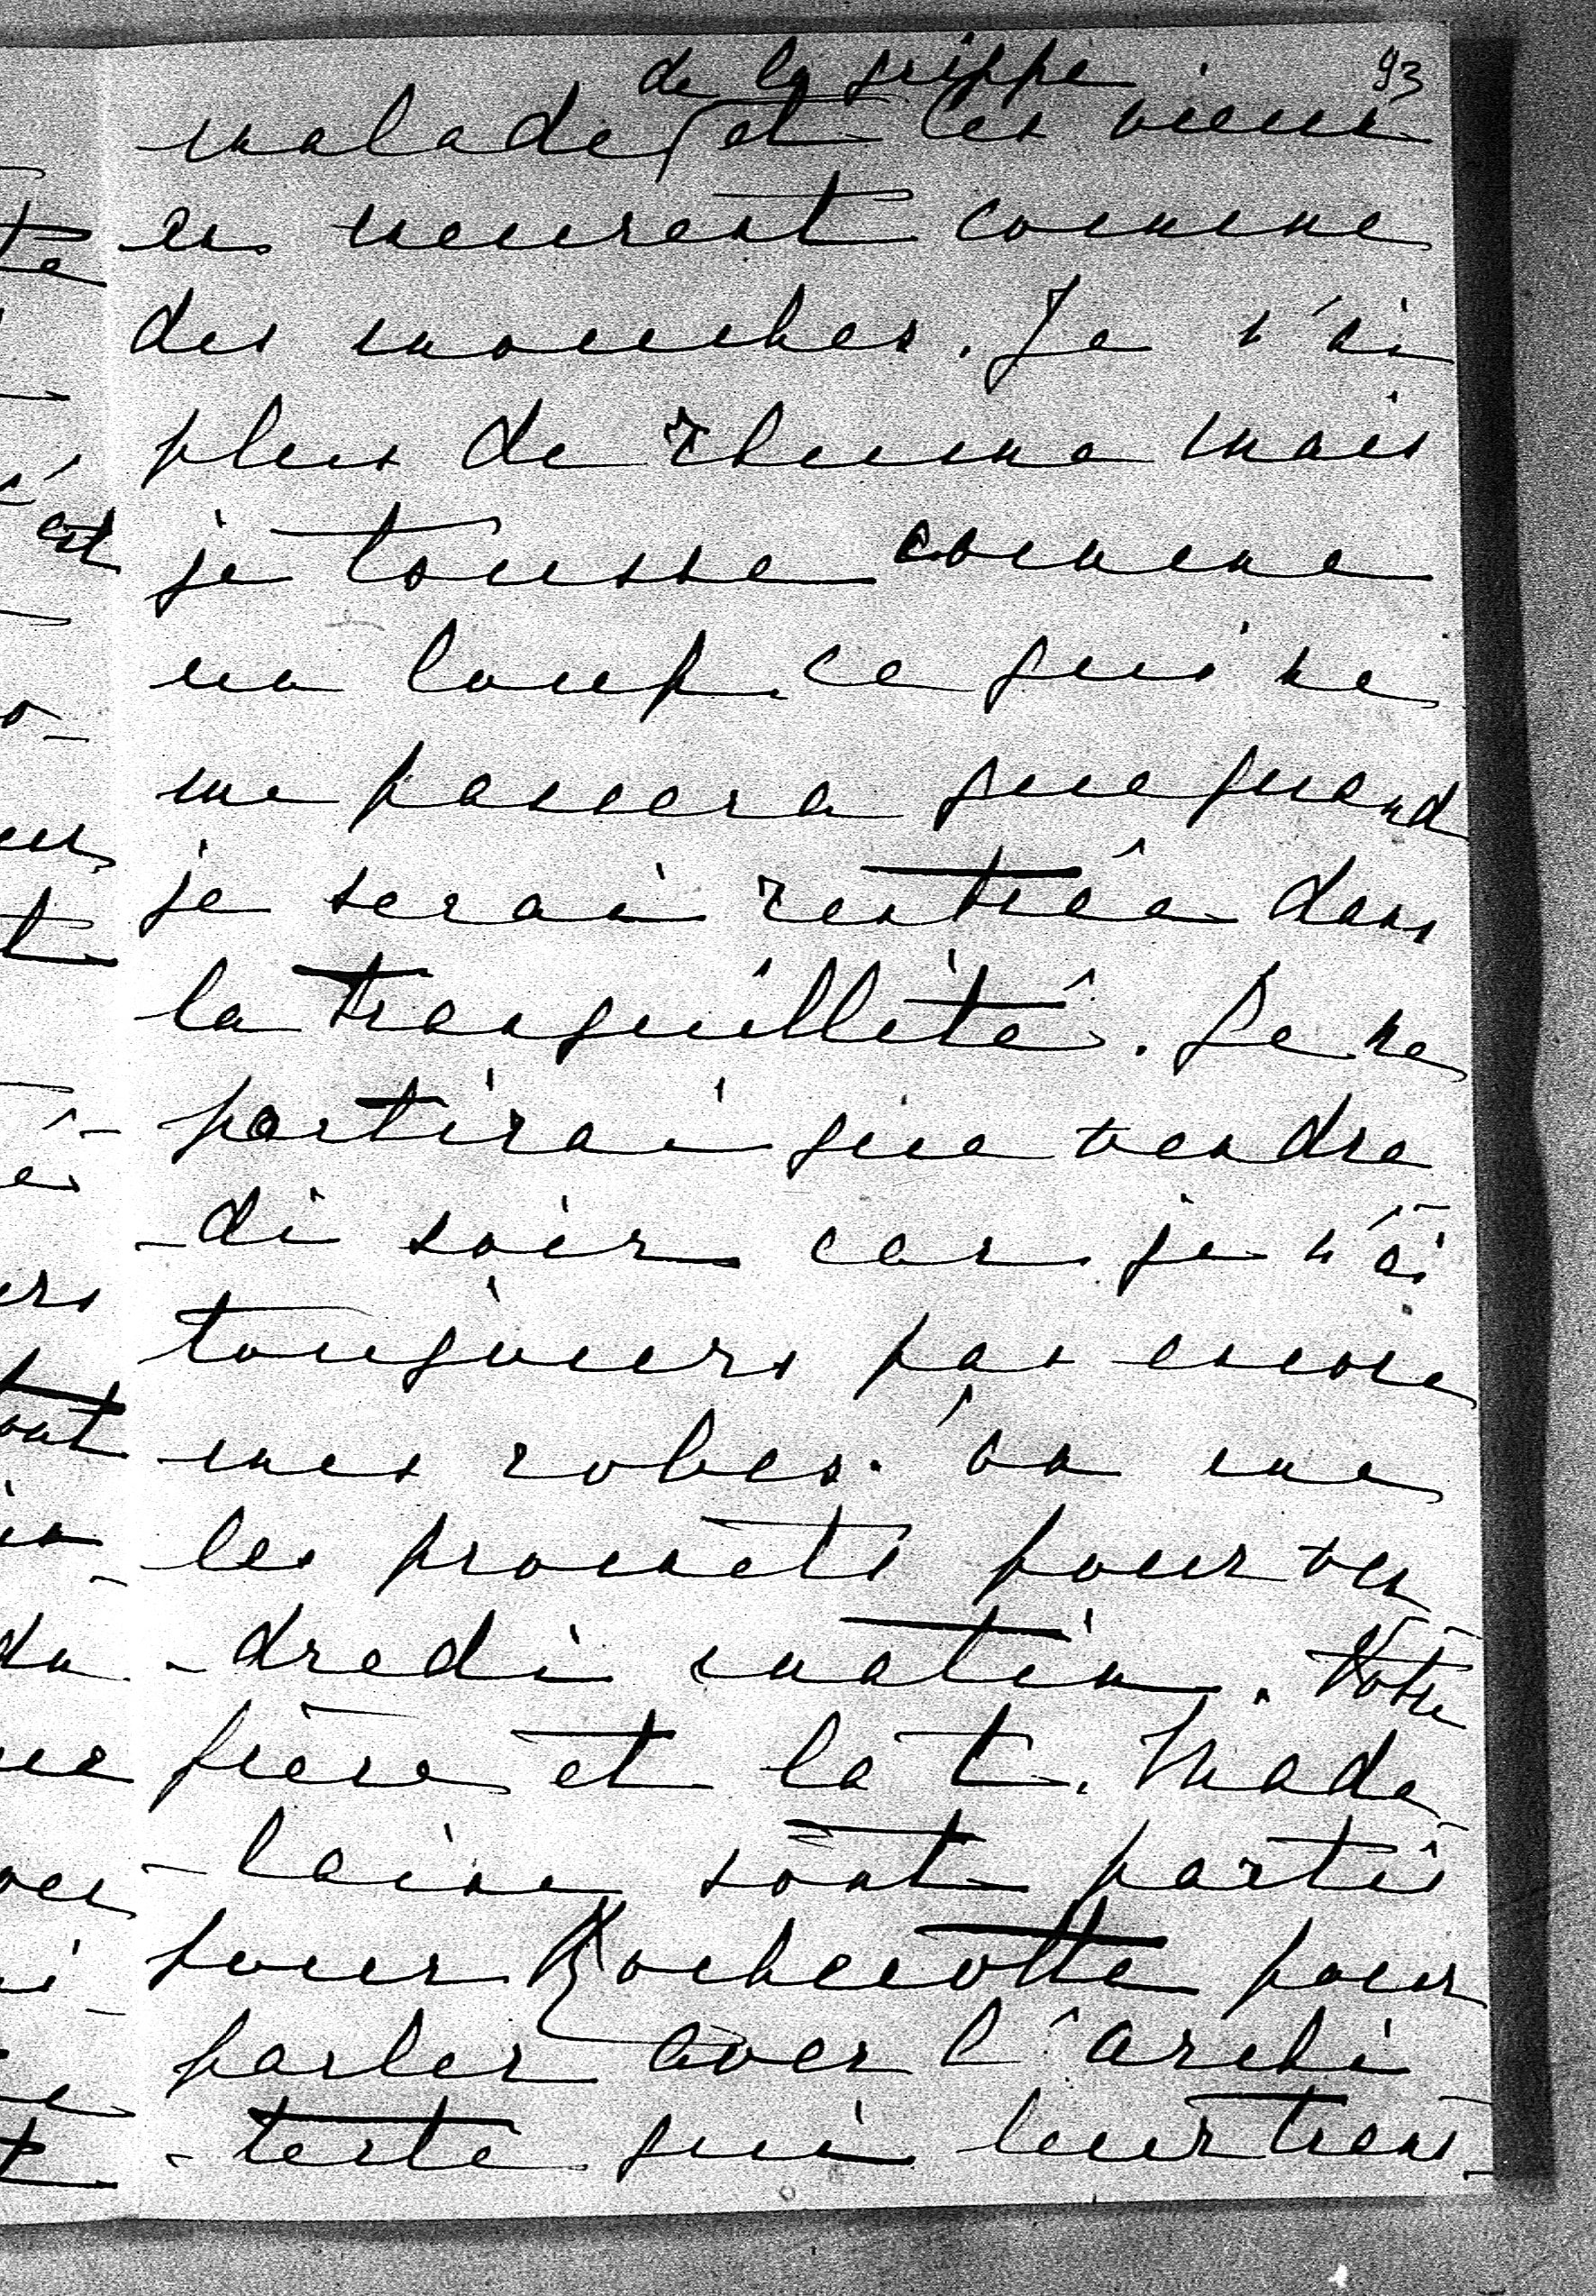 93
de la grippe
malade et les vieux
en meurent comme
des mouches. Je n'ai
plus de rhume mais
je tousse comme
un loup ce qui ne
me passera que quand
je serai rentrée dans
la tranquillité. Je ne
partirai que vendre
-di soir car je n'ai
toujours pas encore
mes robes. on me
les promets pour ven
-dredi matin. Votre
frère et la t. Made
-laine sont partis
pour Rochecotte pour
parler avec l'archi
-tecte qui leur trans